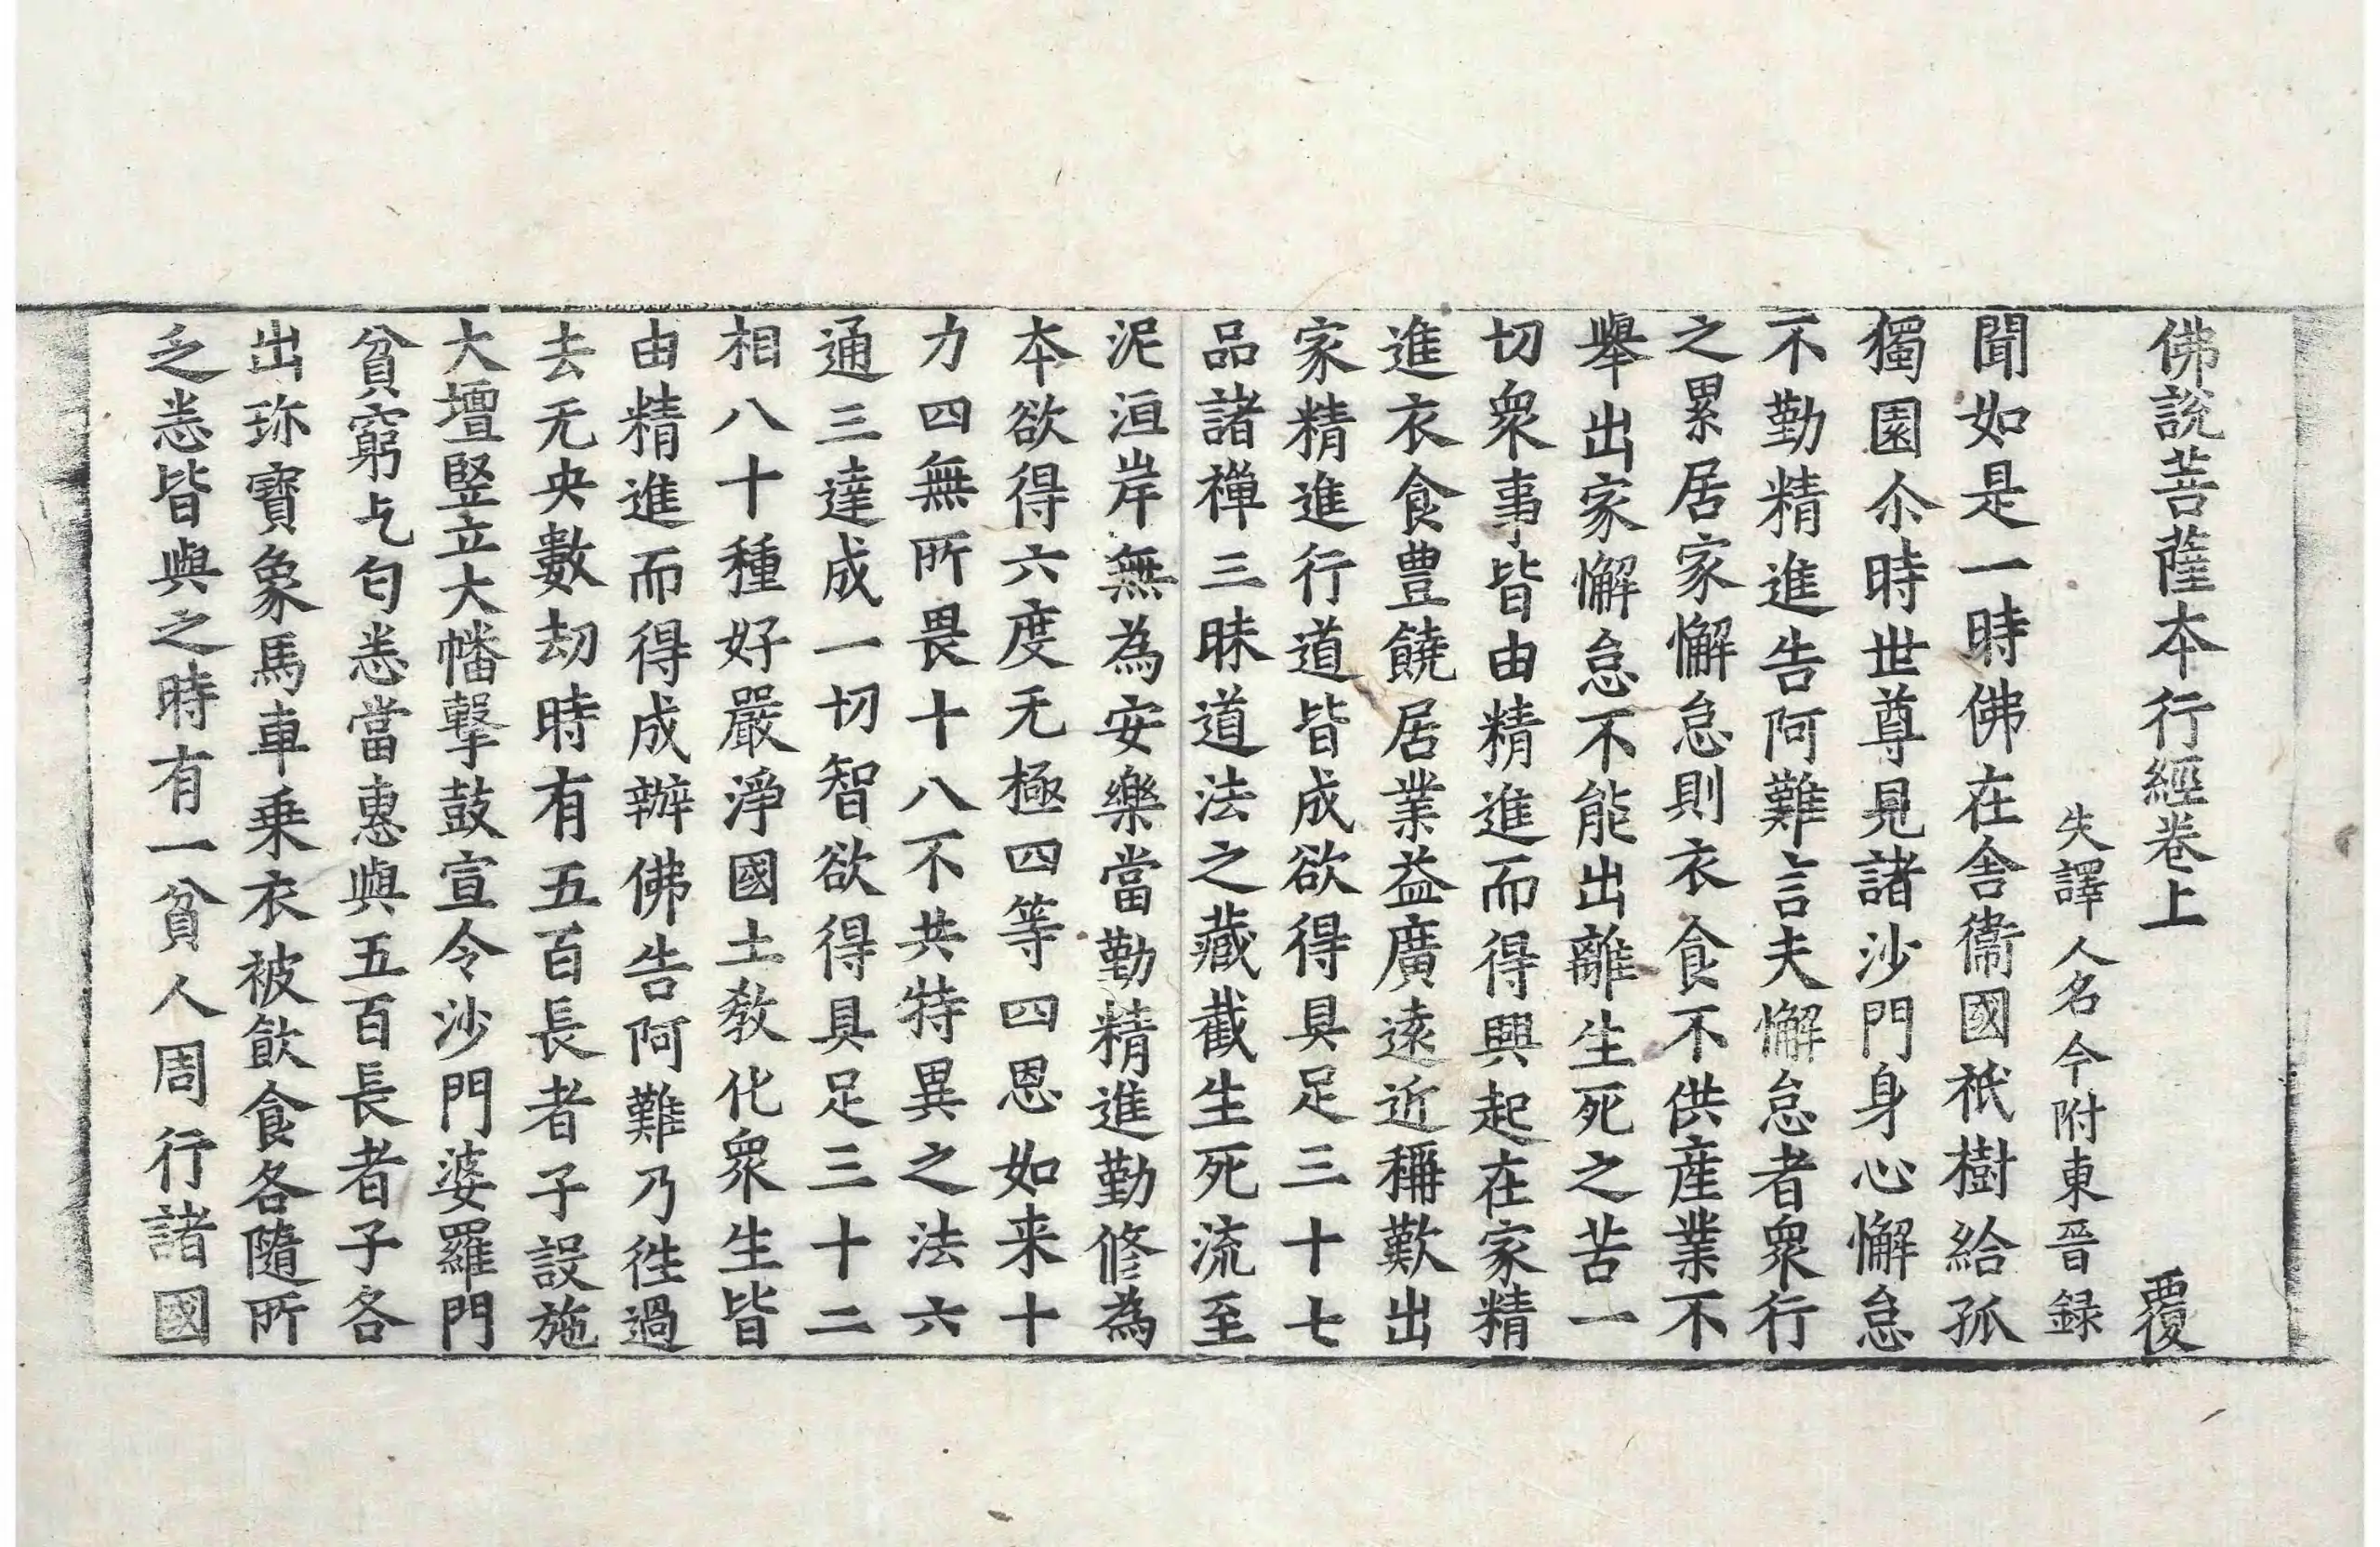 佛說菩薩本行經卷上 覆
失譯人名今附東晉録
聞如是一時佛在舎衞國祇樹給孤
獨園尒時世尊見諸沙門身心懈怠
不勤精進告阿難言夫懈怠者衆行
之累居家懈怠則衣食不供産業不
舉出家懈怠不能出離生死之苦一
切衆事皆由精進而得興起在家精
進衣食豊饒居業益廣逺近稱歎出
家精進行道皆成欲得具足三十七
品諸禪三昧道法之藏截生死流至
泥洹岸無為安樂當勤精進勤修為
本欲得六度无極四等四恩如来十
力四無所畏十八不共特異之法六
通三達成一切智欲得具足三十二
相八十種好嚴淨國土敎化衆生皆
由精進而得成辦佛告阿難乃徃過
去无央數劫時有五百長者子設施
大壇竪立大幡擊鼓宣令沙門婆羅門
貧窮乞匃悉當惠與五百長者子各
出珎寶象馬車乗衣被飮食各隨所
乏悉皆與之時有一貧人周行諸國